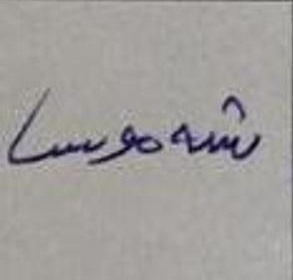 شه موسا